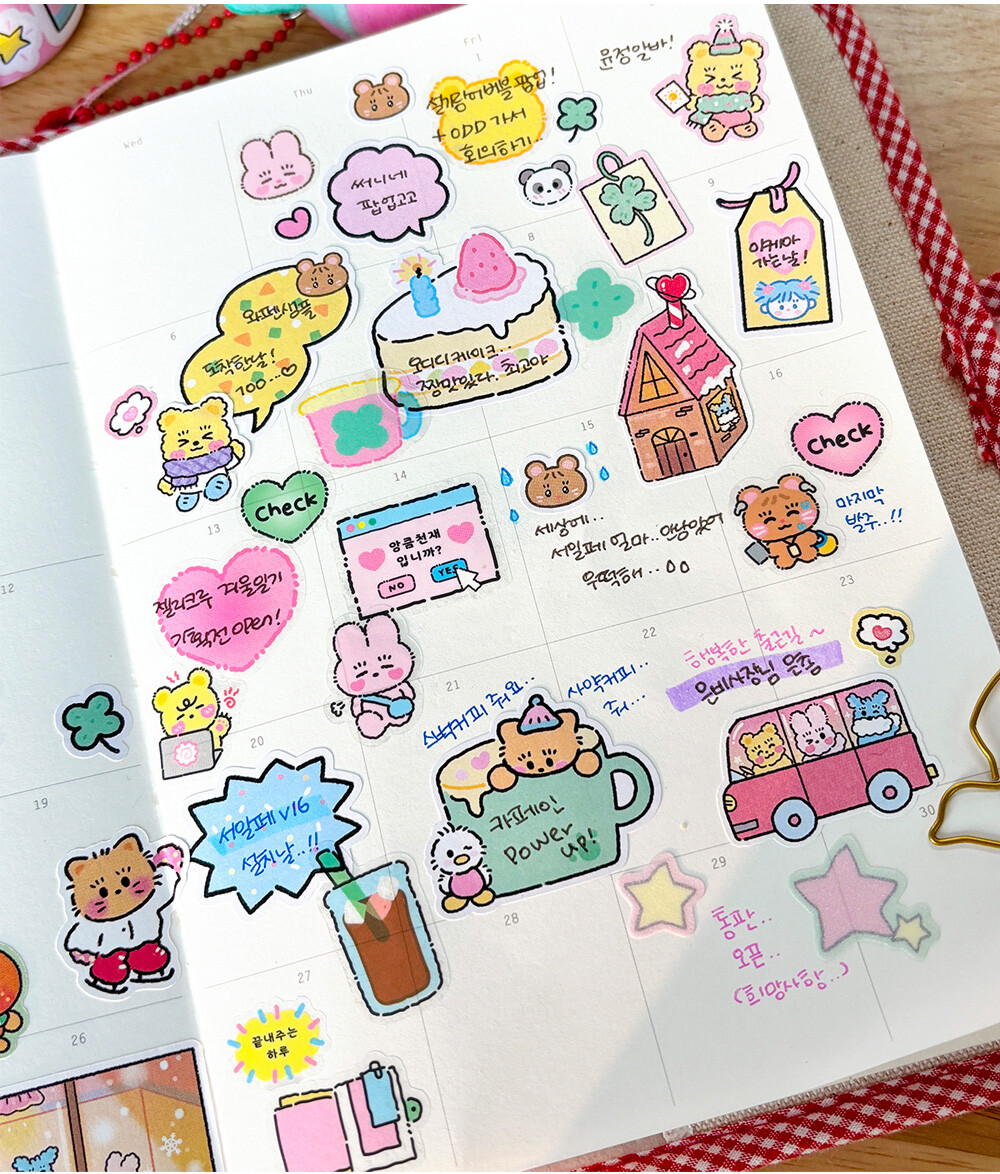 Wed
Thu
Fri
1
윤정알바!
팝업!
+ ODD 가서
회의하기..
써니네
팝업고고
6
8
9
가는날!
와펜샘플
도착한날!
100...♡
오디디케이크..
존맛있다. 최고야
12
13
14
15
16
Check
Check
앙큼천재
입니까?
NO
YES
세상에..
서일페 얼마.. 안남았어
우떡해..
마지막
발주..!!
젤리크루 겨울일기
기획전 open!
19
20
21
22
23
스벅커피 줘요..
사약커피..
줘...
행복한 출근길~
은비사장님 은총
서일페 V16
설치날..!!
카페인
power
up!
26
27
28
29
30
통판..
오픈..
(희망사항..)
끝내주는
하루